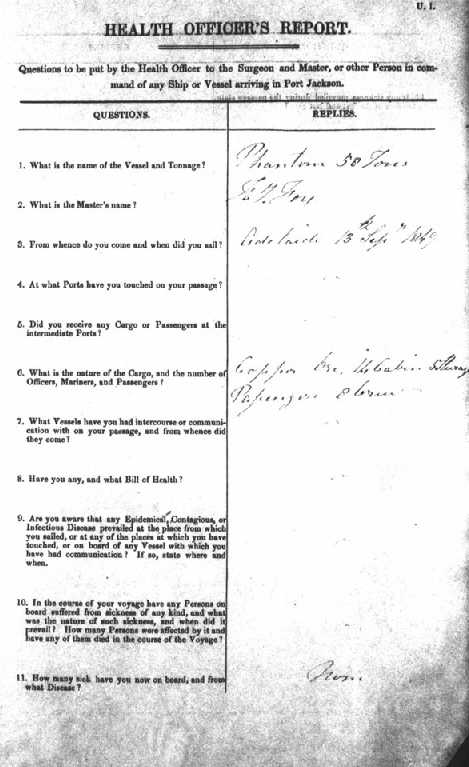 U. I.
HEALTH OFFICER'S REPORT.
Questions to be put by the Health Officer to the Surgeon and Master, or other Person in com-
mand of any Ship or Vessel arriving in Port Jackson.
QUESTIONS.
REPLIES.
1. What is the name of the Vessel and Tonnage?
Phantom 50 Tons
2. What is the Master's name?
3. From whence do you come and when did you sail?
Adelaide 13th Sepr
4. At what Ports have you touched on your passage?
5. Did you receive any Cargo or Passengers at the
intermediate Ports?
6. What is the nature of the Cargo, and the number of
Officers, Mariners, and Passengers?
Copper Ore, Cabin
Passengers 8 Crew
7. What Vessels have you had intercourse or communi-
cation with on your passage, and from whence did
they come?
8. Have you any, and what Bill of Health?
9. Are you aware that any Epidemical, Contagious, or
Infectious Disease prevailed at the place from which
you sailed, or at any of the places at which you have
touched, or on board of any Vessel with which you
have had communication? If so, state where and
when.
10. In the course of your voyage have any Persons on
board suffered from sickness of any kind, and what
was the nature of such sickness, and when did it
prevail? How many Persons were affected by it and
have any of them died in the course of the Voyage?
11. How many sick have you now on board, and from
what Disease?
None